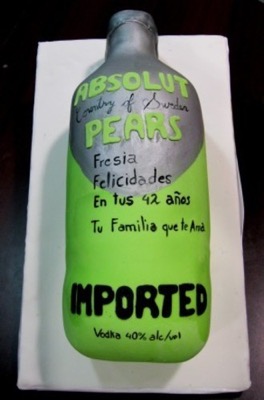 ABSOLUT
Country of Sweden
PEARS
Fresia
Felicidades
En tus 42 años
Tu Familia que te Ama
IMPORTED
Vodka 40% alc/vol